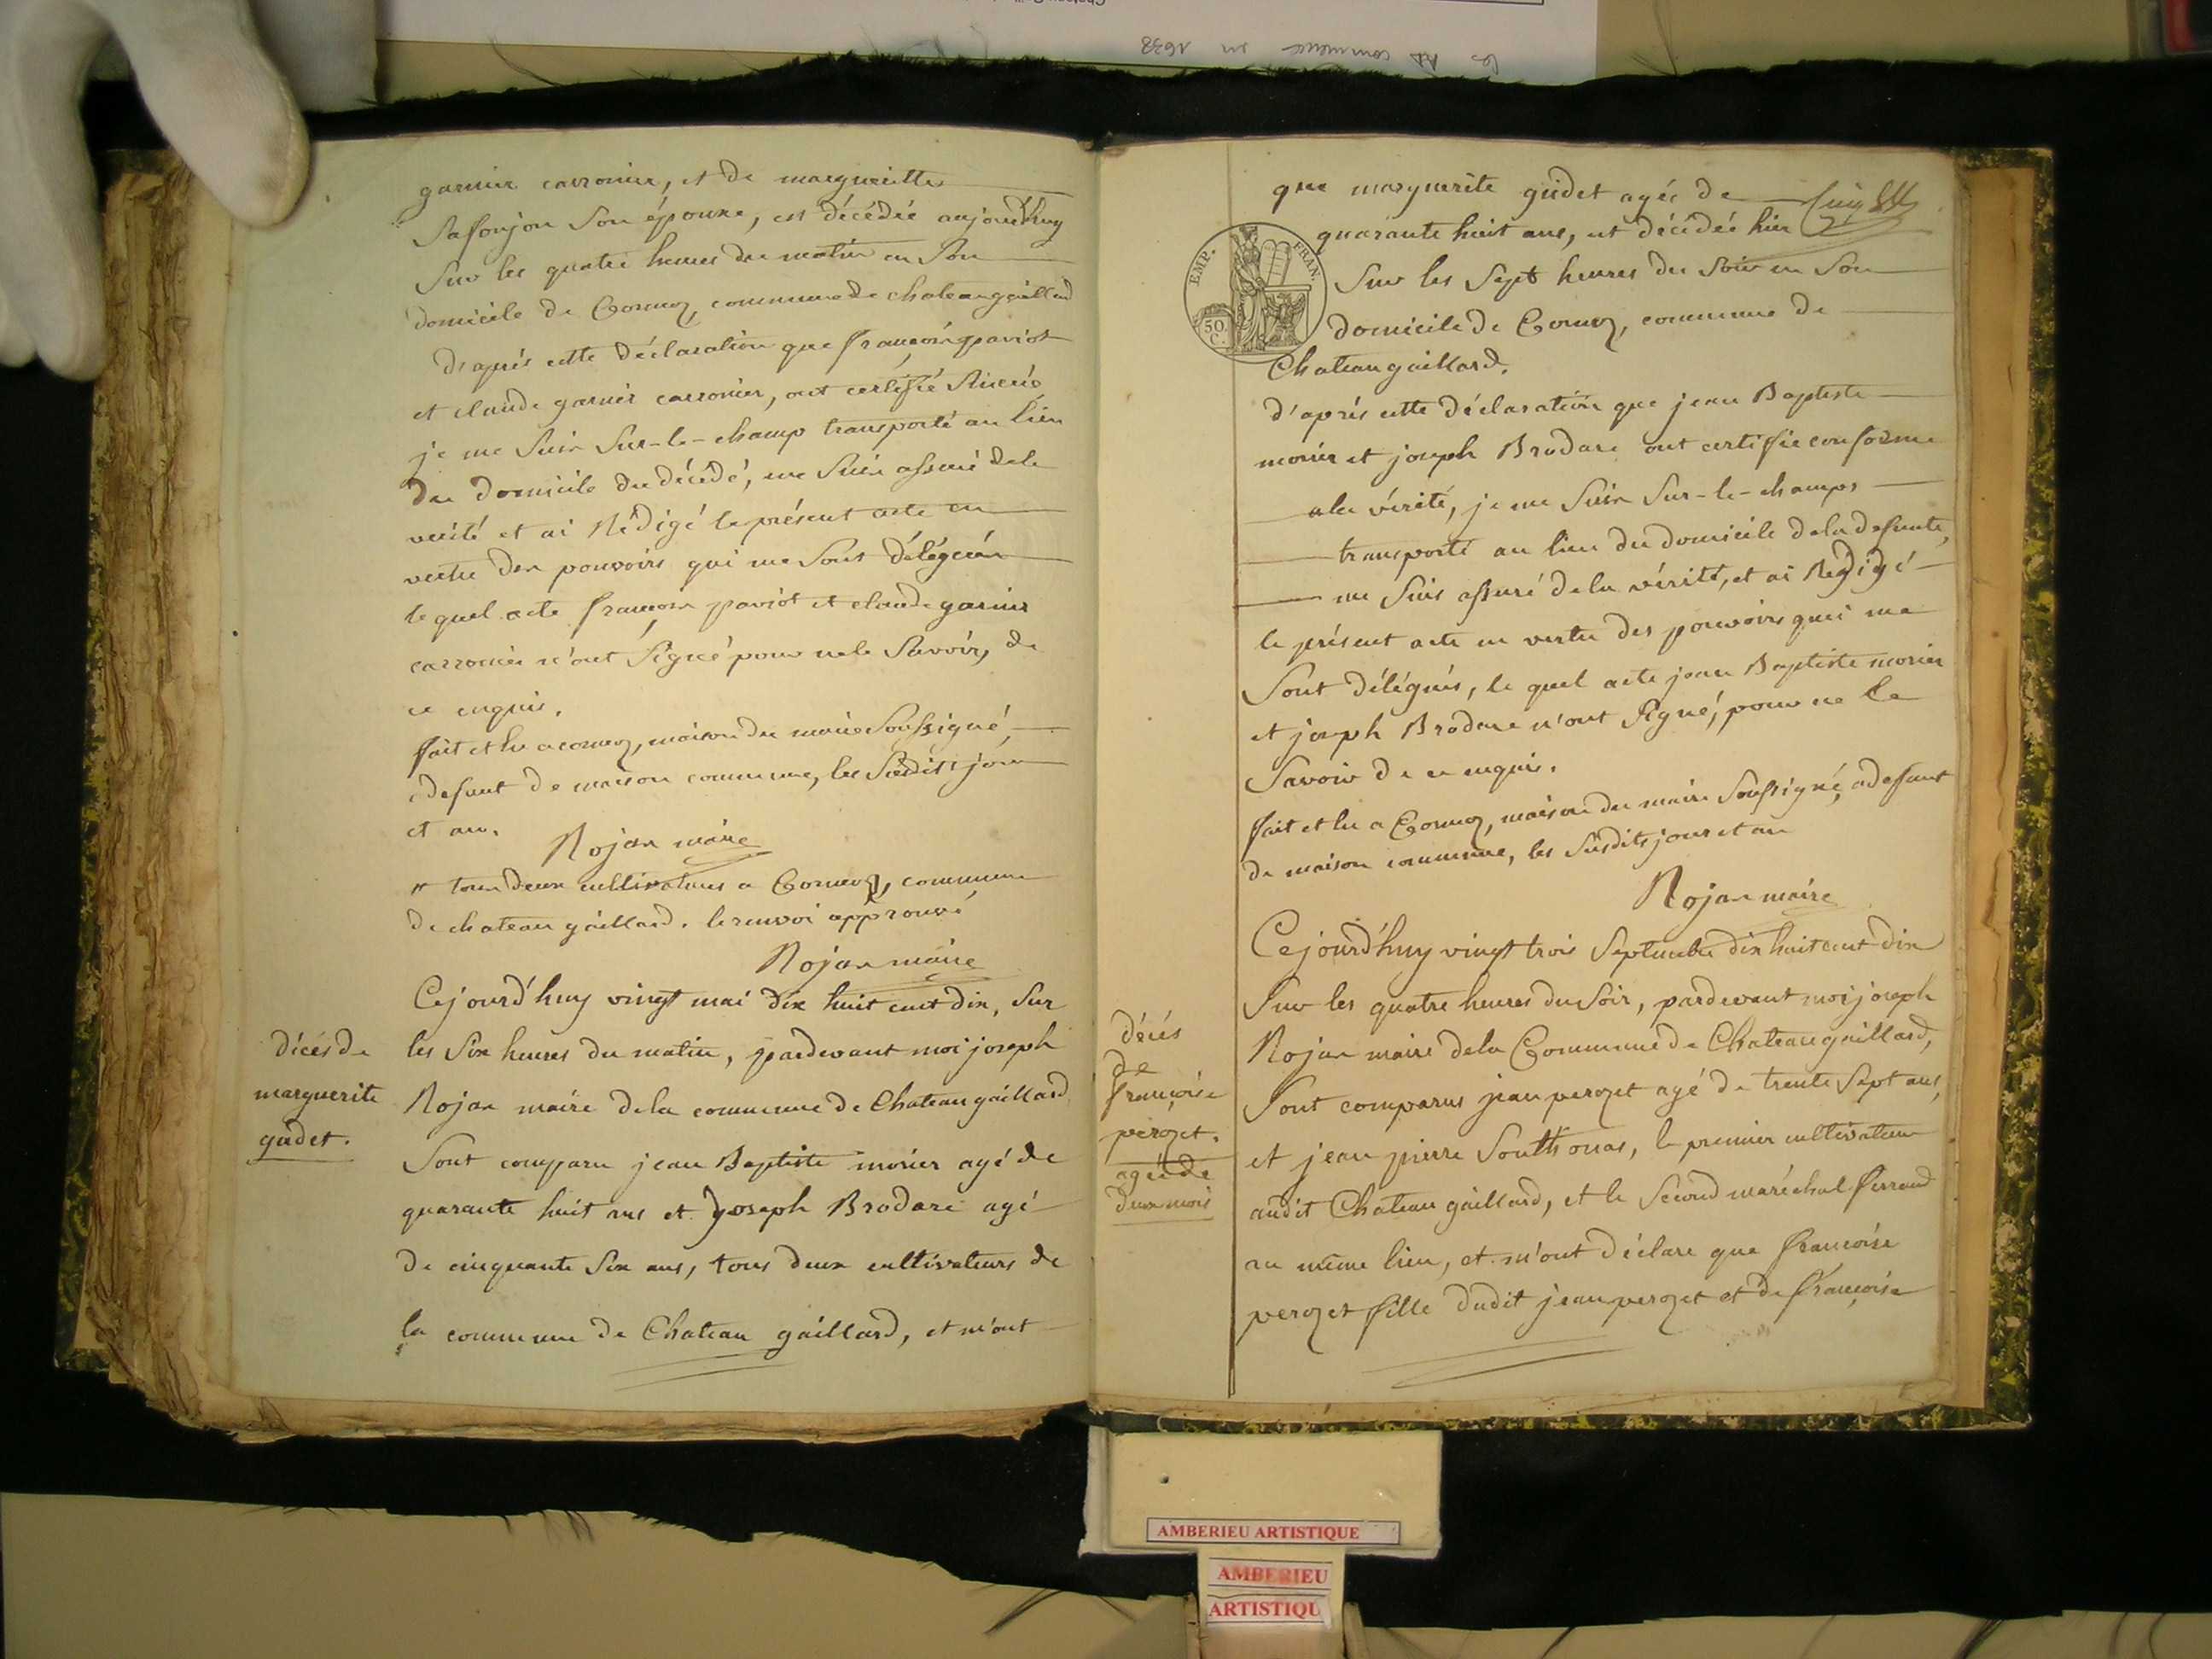 le RP commence en 1638
garnier carronier, et de marguerittes
Lafonjon Son épouse, est décédée aujourd'huy
Sur les quatre heures du matin en Son
domicile de Cormoz, commune de chateaugaillard
d'après cette déclaration que françois paviot
et claude garnier carronier, ont certifié Sincère
je me Suis Sur-le-champ transporté au lieu
du domicile du décédé, me Suis assuré de la
verité et ai Rédigé le présent acte en
vertu des pouvoirs qui me Sont délégués
le quel acte françois paviot et claude garnier
carronier n'ont Signé pour ne le Savoir, de
ce enquis.
fait et lu a cormoz, maison du maire Soussigné,
adefaut de maison commune, les Susdits jour
et an.
Rojan maire
tous deux cultivateurs a Cormoz, commune
de chateau gaillard. le renvoi approuvé
Rojan maire
décés de
marguerite
gudet.
Cejourd'huy vingt mai dix huit cent dix, Sur
les Six heures du matin, pardevant moi joseph
Rojan maire dela commune de Chateau gaillard,
Sont comparu jean Baptiste morier agé de
quarante huit ans et joseph Brodare agé
de cinquante Six ans, tous deux cultivateurs de
la commune de Chateau gaillard, et m'ont
que marguerite gudet agée de
quarante huit ans, est décédée hier
Sur les Sept heures du Soir en Son
domicile de Cormoz, commune de
Chateau gaillard.
EMP. FRAN.
50
C.
d'après cette déclaration que jean Baptiste
morier et joseph Brodare ont certifié conforme
a la vérité, je me Suis Sur-le-champs
transporté au lieu du domicile dela defunte,
me Suis assuré dela vérité, et ai Redigé
le présent acte en vertu des pouvoirs qui me
Sont délégués, le quel acte jean Baptiste morier
et joseph Brodare n'ont Signé, pour ne le
Savoir de ce enquis.
fait et lu a Cormoz, maison du maire Soussigné, adefaut
de maison commune, les Susdits jour et an
Rojan maire
décés
de
françoise
perozet.
agée de
deux mois
Cejourd'huy vingt trois Septembre dix huit cent dix
Sur les quatre heures du Soir, pardevant moi joseph
Rojan maire dela Commune de Chateau gaillard,
Sont comparus jean perozet agé de trente Sept ans,
et jean pierre Southonas, le premier cultivateur
audit Chateau gaillard, et le Second maréchal ferrand
au même lieu, et m'ont déclare que françoise
perozet fille dudit jean perozet et de françoise
AMBERIEU ARTISTIQUE
AMBERIEU
ARTISTIQU